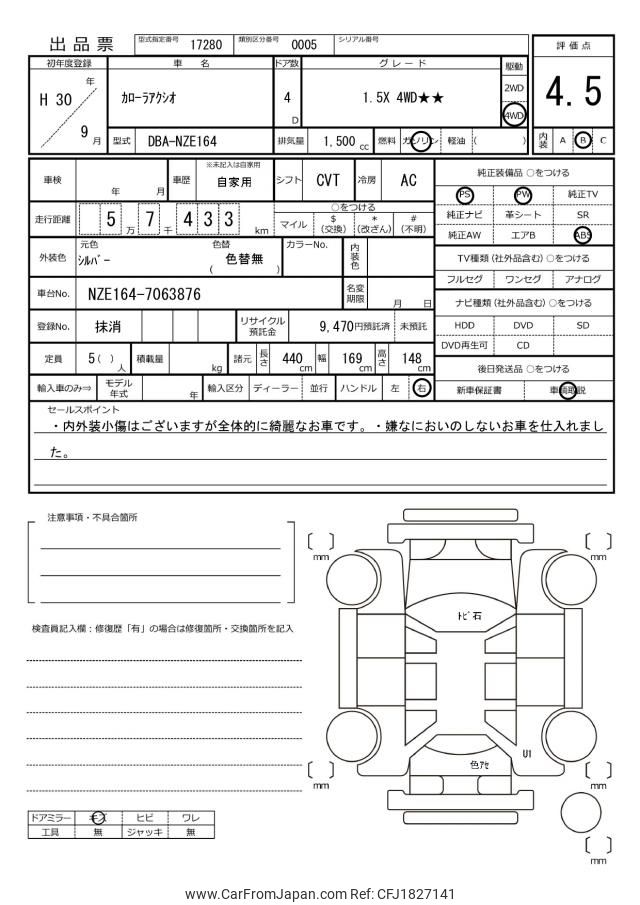 出品票 型式指定番号 17280 類別区分番号 0005 シリアル番号
評価点
4.5
内装 A B C
初年度登録 車名 ドア数 グレード 駆動
H 30 年 9 月
カローラアクシオ
4 D
1.5X 4WD★★
2WD
4WD
型式 DBA-NZE164 排気量 1,500 cc 燃料 ガソリン 軽油 ( )
車検 年 月 車歴 ※未記入は自家用 自家用 シフト CVT 冷房 AC
走行距離 5 万 7 千 4 3 3 km
○をつける
マイル $ (交換) * (改ざん) # (不明)
外装色 元色 シルバー 色替 ( 色替無 ) カラーNo. 内装色
車台No. NZE164-7063876 名変期限 月 日
登録No. 抹消 リサイクル預託金 9,470円預託済 未預託
定員 5( )人 積載量 kg 諸元 長さ 440cm 幅 169cm 高さ 148cm
輸入車のみ⇒ モデル年式 年 輸入区分 ディーラー 並行 ハンドル 左 右
純正装備品 ○をつける
PS PW 純正TV
純正ナビ 革シート SR
純正AW エアB ABS
TV種類 (社外品含む) ○をつける
フルセグ ワンセグ アナログ
ナビ種類 (社外品含む) ○をつける
HDD DVD SD
DVD再生可 CD
後日発送品 ○をつける
新車保証書 車輌取説
セールスポイント
・内外装小傷はございますが全体的に綺麗なお車です。・嫌なにおいのしないお車を仕入れまし
た。
注意事項・不具合箇所
検査員記入欄：修復歴「有」の場合は修復箇所・交換箇所を記入
mm
mm
トビ石
U1
色アセ
mm
mm
mm
ドアミラー キズ ヒビ ワレ
工具 無 ジャッキ 無
www.CarFromJapan.com Ref: CFJ1827141